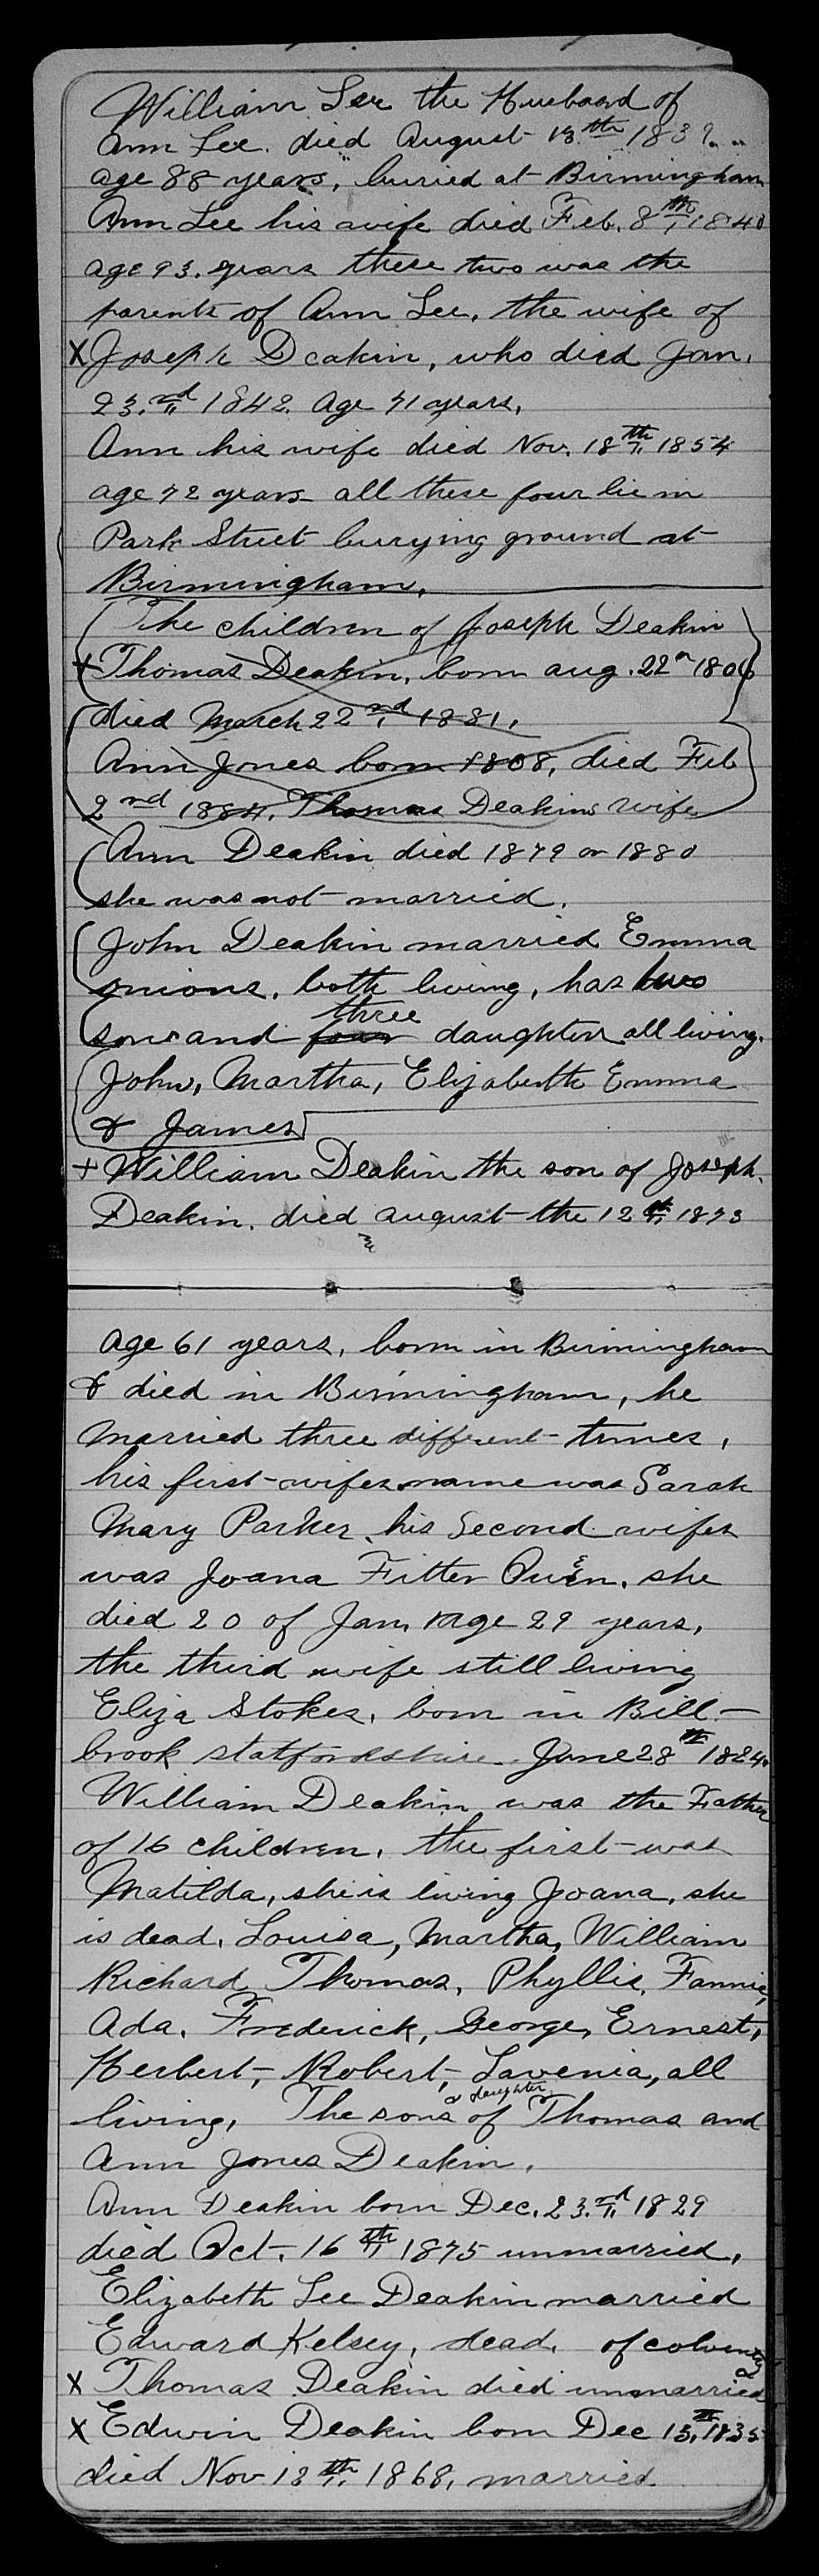 William Lee the Husband of
Ann Lee. died August 13th 183?
age 88 years, buried at Birmingham
Ann Lee his wife died Feb. 8th 1840
age 93. years these two was the
parents of Ann Lee, the wife of
X Joseph Deakin, who died Jan.
23.rd 1842. Age 71 years,
Ann his wife died Nov. 18th 1854
age 72 years all these four lie in
Park Street burying ground at
Birmingham.
The children of Joseph Deakin
+ Thomas Deakin, born aug. 22n 1806
died March 22nd 1881,
Ann Jones born 1808, died Feb
2nd 1884, Thomas Deakins wife
Ann Deakin died 1879 or 1880
she was not married.
John Deakin married Emma
onions, both living, has two
three
sons and four daughters all living.
John, Martha, Elizabeth Emma
& James
+ William Deakin the son of Joseph.
Deakin. died august the 12th 1873
age 61 years, born in Birmingham
& died in Birmingham, he
married three different times,
his first wifes name was Sarah
Mary Parker, his Second wifes
was Joana Fitter Quen. she
died 20 of Jan, age 29 years,
the third wife still living
Eliza Stokes, born in Bill-
brook staffordshire. June 28th 1824.
William Deakin was the Father
of 16 children, the first was
Matilda, she is living Joana, she
is dead, Louisa, Martha, William
Richard Thomas, Phyllis, Fannie,
Ada, Frederick, George, Ernest,
Herbert, Robert, Lavenia, all
& daughter
living, The sons of Thomas and
Ann Jones Deakin.
Ann Deakin born Dec. 23.rd 1829
died Oct. 16th 1875 unmarried,
Elizabeth Lee Deakin married
Edward Kelsey, dead, of coventry
X Thomas Deakin died unmarried
X Edwin Deakin born Dec 15,th 1835
died Nov 13th 1868, married